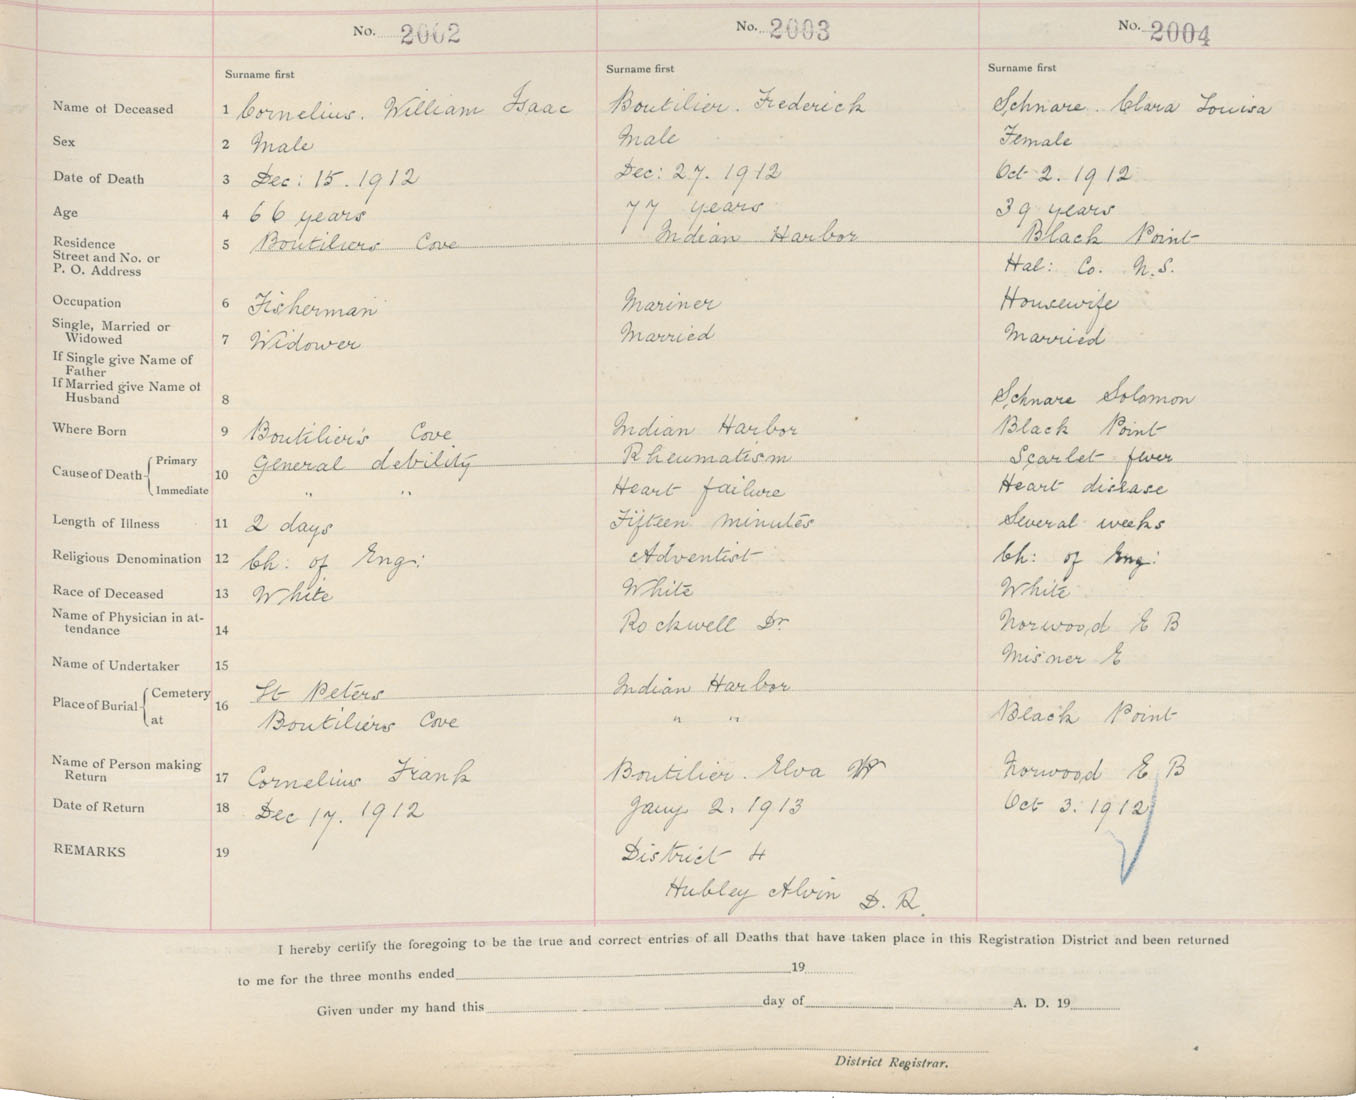 No. 2002 No. 2003 No. 2004
Surname first Surname first Surname first
Name of Deceased 1 Cornelius. William Isaac Boutilier. Frederick Schnare. Clara Louisa
Sex 2 Male Male Female
Date of Death 3 Dec: 15. 1912 Dec: 27. 1912 Oct 2. 1912
Age 4 66 years 77 years 39 years
Residence Street and No. or P. O. Address 5 Boutiliers Cove Indian Harbor Black Point
Hal: Co. N.S.
Occupation 6 Fisherman Mariner Housewife
Single, Married or Widowed 7 Widower Married Married
If Single give Name of Father
If Married give Name of Husband 8 Schnare Solomon
Where Born 9 Boutilier's Cove Indian Harbor Black Point
Cause of Death Primary 10 General debility Rheumatism Scarlet fever
Immediate " " Heart failure Heart disease
Length of Illness 11 2 days Fifteen minutes Several weeks
Religious Denomination 12 Ch: of Eng: Adventist Ch: of Eng:
Race of Deceased 13 White White White
Name of Physician in attendance 14 Rockwell Dr Norwood E B
Name of Undertaker 15 Misner E
Place of Burial Cemetery 16 St Peters Indian Harbor
at Boutiliers Cove " " Black Point
Name of Person making Return 17 Cornelius Frank Boutilier. Elva W Norwood E B
Date of Return 18 Dec 17. 1912 Jany 2. 1913 Oct 3. 1912
REMARKS 19 District 4
Hubley Alvin D. R.
I hereby certify the foregoing to be the true and correct entries of all Deaths that have taken place in this Registration District and been returned
to me for the three months ended 19
Given under my hand this day of A. D. 19
District Registrar.